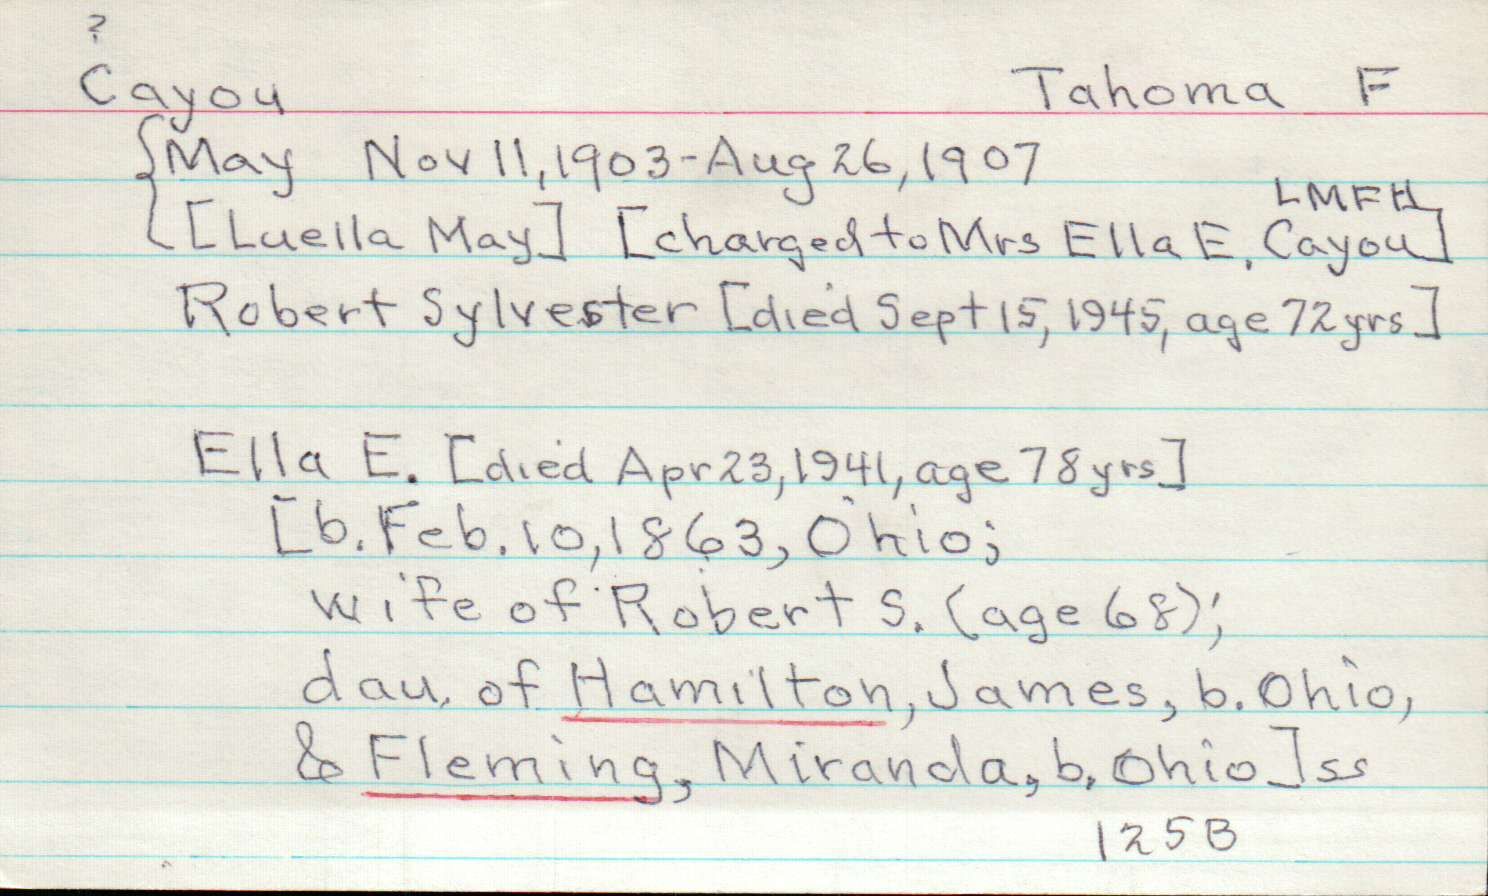 ?
Cayou Tahoma F
{May Nov 11, 1903-Aug 26, 1907
LMFH
[Luella May] [charged to Mrs Ella E. Cayou]
Robert Sylvester [died Sept 15, 1945, age 72 yrs]
Ella E. [died Apr 23, 1941, age 78 yrs]
[b. Feb. 10, 1863, Ohio;
wife of Robert S. (age 68);
dau. of Hamilton, James, b. Ohio,
& Fleming, Miranda, b, Ohio] ss
125B